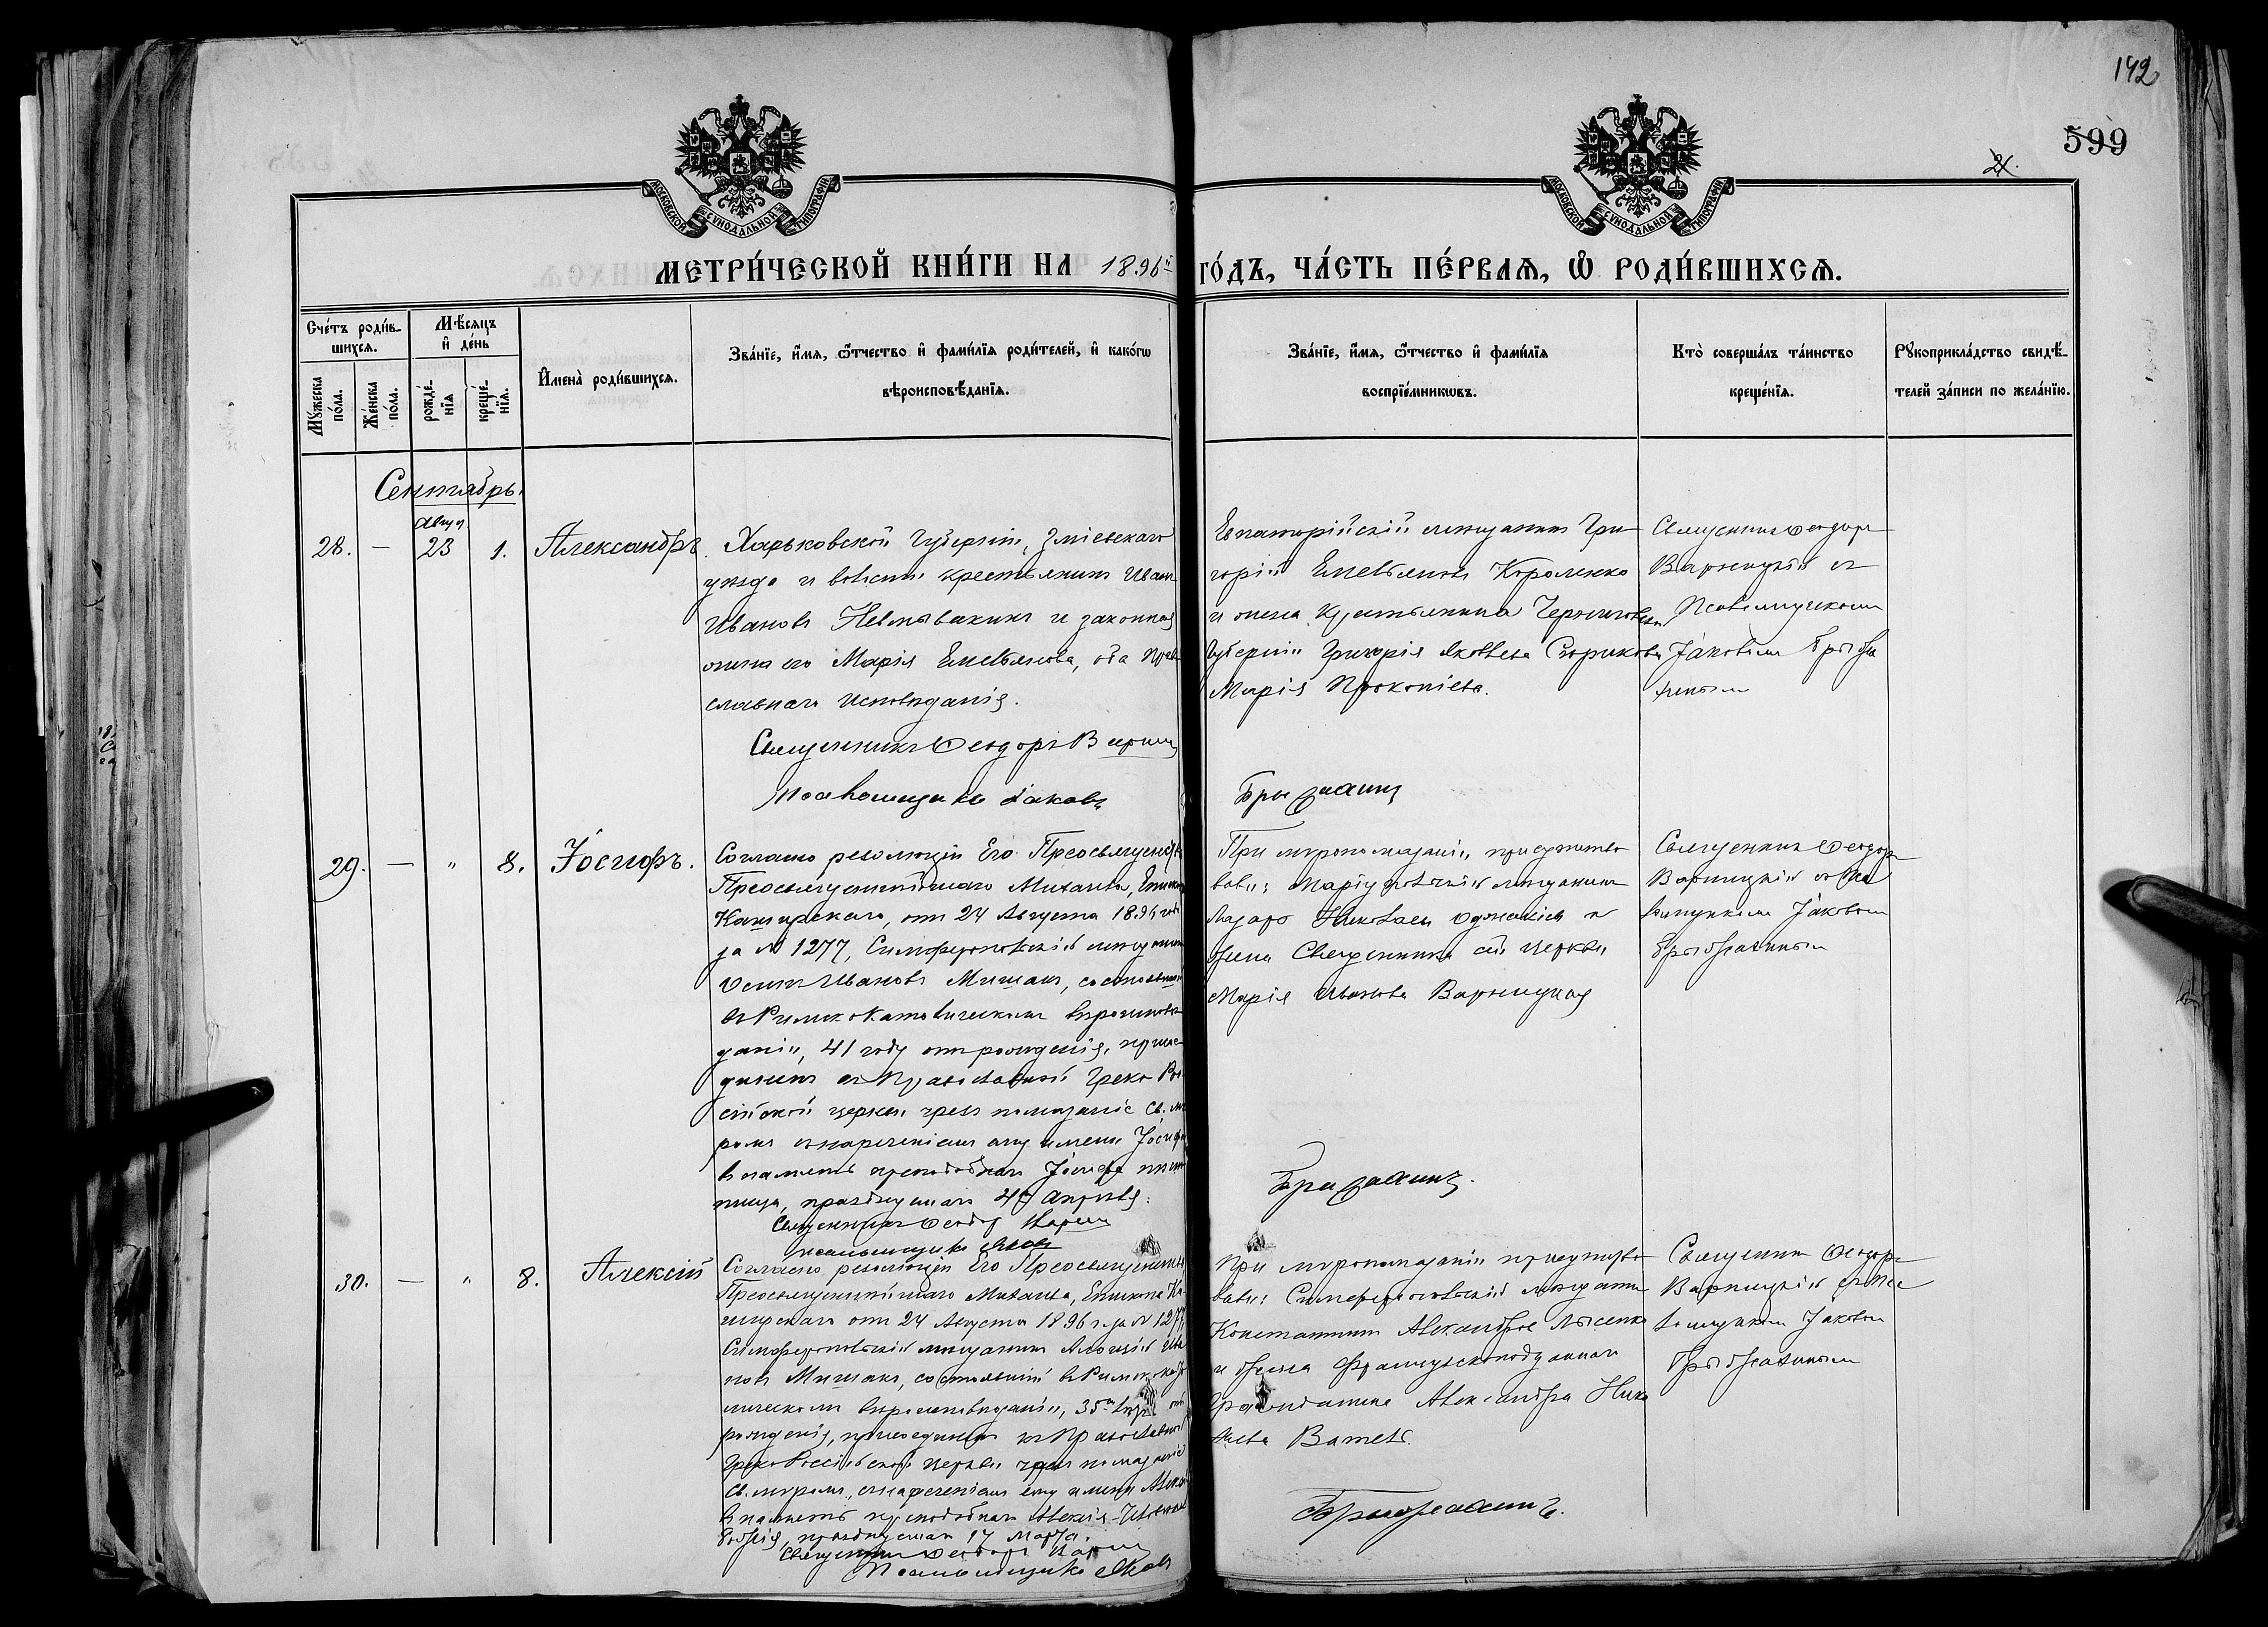 142
599
24.
МОСКОВСКОЙ СѴНОДАЛЬНОЙ ТИПОГРАФІИ
МОСКОВСКОЙ СѴНОДАЛЬНОЙ ТИПОГРАФІИ
МЕТРИ́ЧЕСКОЙ КНИ́ГИ НА 1896й ГО́ДЪ, ЧА́СТЬ ПЕ́РВАѦ, Ѡ҆ РОДИ́ВШИХСѦ.
Сче́тъ роди́в-
шихсѧ.
Мꙋжеска
по́ла.
Же́нска
по́ла.
Мѣ́сѧцъ
и҆ де́нь
рожде́-
нїѧ
креще́-
нїѧ.
И҆мена̀ роди́вшихсѧ.
Зва́нїе, и҆́мѧ, ѻ҆́тчество и҆ фами́лїѧ роди́телей, и҆ како́гѡ
вѣроисповѣ́данїѧ.
Зва́нїе, и҆́мѧ, ѻ҆́тчество и҆ фами́лїѧ
воспрїе́мникѡвъ.
Кто̀ соверша́лъ та́инство
креще́нїѧ.
Рꙋкоприкла́дство свидѣ́-
телей за́писи по жела́нїю.
Сентябрь.
Авгус
28. — 23 1. Александръ.
Харьковской Губерніи, Зміевскаго
уѣзда и волости крестьянинъ Иванъ
Ивановъ Невмывакинъ и законная
жена его Марія Емельянова, оба Право
славнаго исповѣданія.
Священникъ Ѳеодоръ Варниц
Псаломщикъ Іаковъ
Евпаторійскій мѣщанинъ Гри
горій Емельяновъ Короленко
и жена крестьянина Черниговской
Губерніи Григорія Яковлева Скорикова
Марія Прокопіева.
Священникъ Ѳеодоръ
Варницкій съ
Псаломщикомъ
Іаковомъ
29. — „ 8. Іосифъ.
Согласно резолюціи Его Преосвященства
Преосвященнѣйшаго Михаила, Епископа
Каширскаго, отъ 24 Августа 1896 года
за № 1277, Симферопольскій мѣщанинъ
Осипъ Ивановъ Мишакъ, состоявшій
въ Римско Католическомъ вѣроисповѣ
даніи, 41 году отъ рожденія, присое
диненъ къ Православной Греко Рос
сійской церкви чрезъ помазаніе Св. Ми
ромъ съ нареченіемъ ему имени Іосифъ
въ память преподобнаго Іосифа пѣсно
писца, празднуемаго 4го Апрѣля.
Священникъ Ѳеодоръ Варниц
Псаломщикъ Іаковъ
При миропомазаніи присутство
вали: Маріупольскій мѣщанинъ
Лазарь Николаевъ
жена Священника сей церкви
Марія Иванова Варницкая
Священникъ Ѳеодоръ
Варницкій съ Пса
ломщикомъ Іаковомъ
30. — „ 8. Алексій
Согласно резолюціи Его Преосвященства
Преосвященнѣйшаго Михаила, Епископа Ка
ширскаго отъ 24 Августа 1896 г. за № 1277
Симферопольскій мѣщанинъ Алоизій Ива
новъ Мишакъ, состоявшій въ Римско като
лическомъ вѣроисповѣданіи, 35ти лѣтъ отъ
рожденія, присоединенъ къ Православной
Греко Россійской церкви чрезъ помазаніе
Св. миромъ, съ нареченіемъ ему имени Алексій
въ память преподобнаго Алексія Человѣка
Божія, празднуемаго 17 Марта.
Священникъ Ѳеодоръ Варниц
Псаломщикъ Іаковъ
При миропомазаніи присутство
вали: Симферопольскій мѣщанинъ
Константинъ Александровъ Лысенко
и жена Французскоподданнаго
Александра Нико
лаева
Священникъ Ѳеодоръ
Варницкій съ Пса
ломщикомъ Іаковомъ